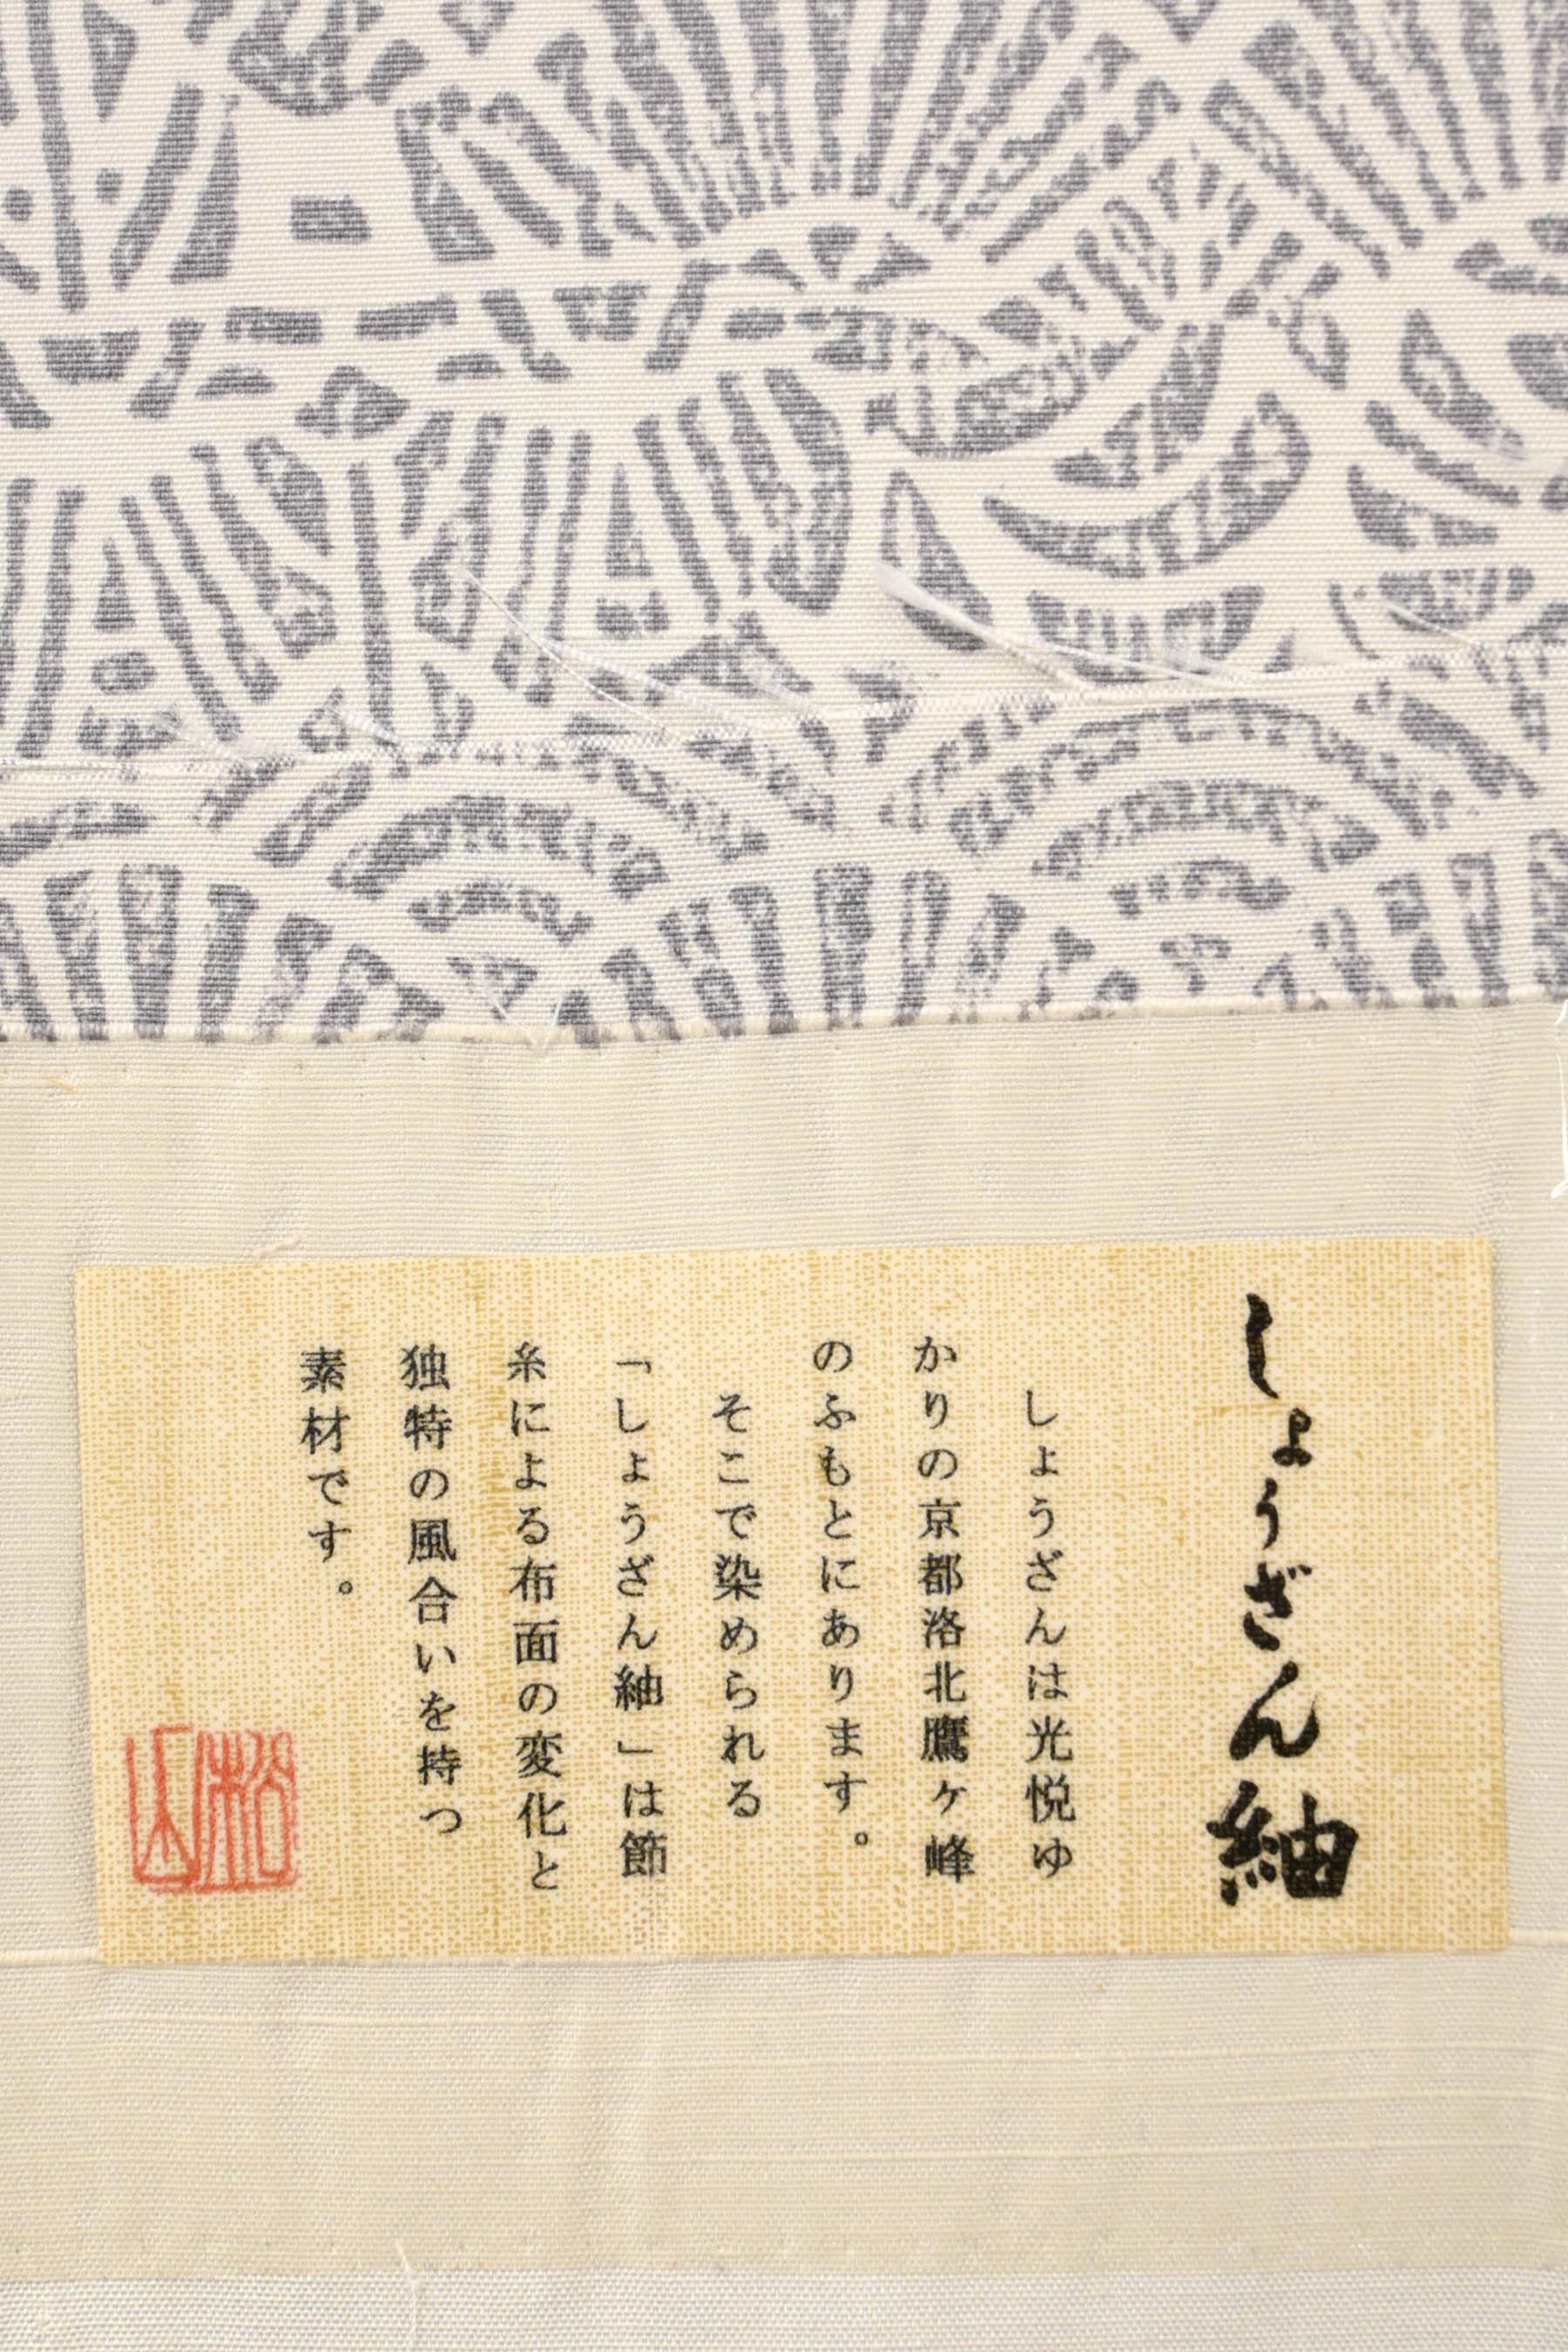 しょうざん紬
しょうざんは光悦ゆ
かりの京都洛北鷹ヶ峰
のふもとにあります。
そこで染められる
「しょうざん紬」は節
糸による布面の変化と
独特の風合いを持つ
素材です。
松山